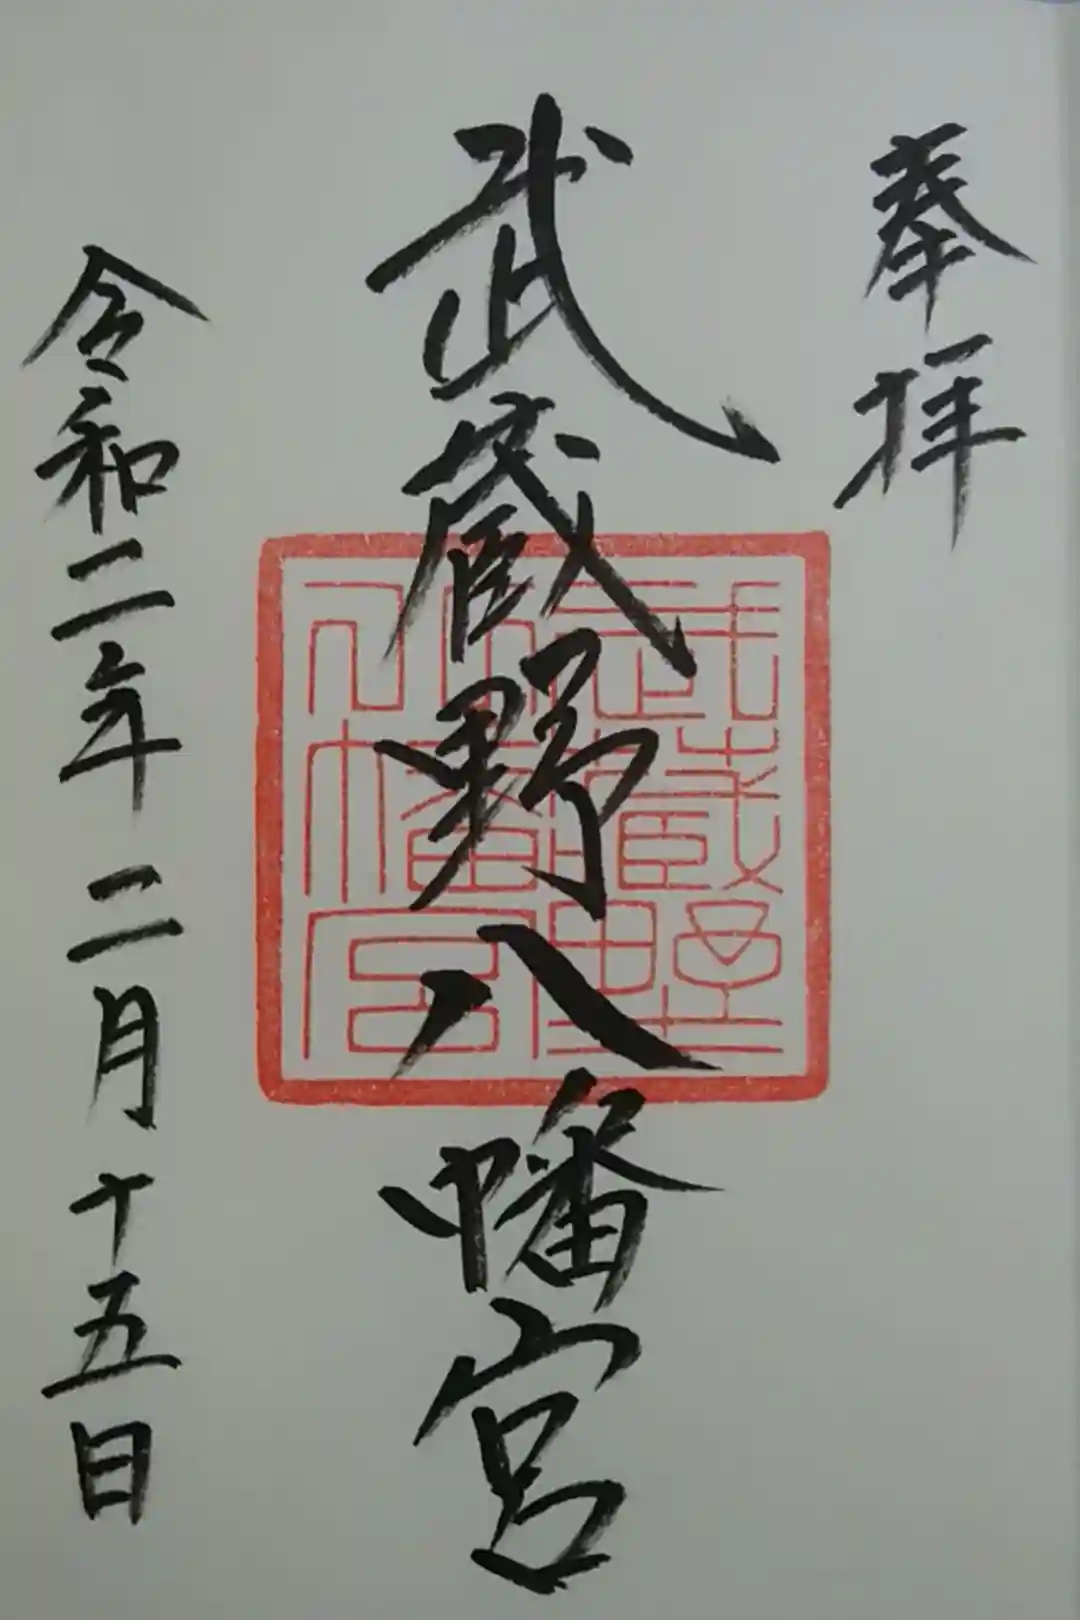 奉拝
武蔵野八幡宮
武蔵野
八幡宮
令和二年二月十五日